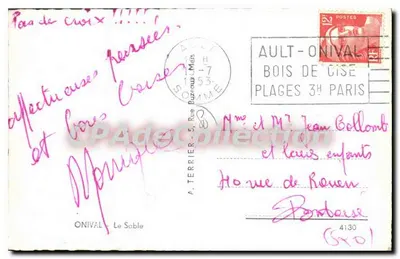 Pas de croix !!!!!
affectueuses pensées
et bons baisers
AULT
7
53
SOMME
POSTES
AULT-ONIVAL
BOIS DE CISE
PLAGES 3H PARIS
A. TERRIER - 5, Rue
Mme et Mr Jean Collomb
et leurs enfants
40 rue de Rouen
Pontoise
(S&O)
UPAdeCollection
ONIVAL - Le Sable
4130